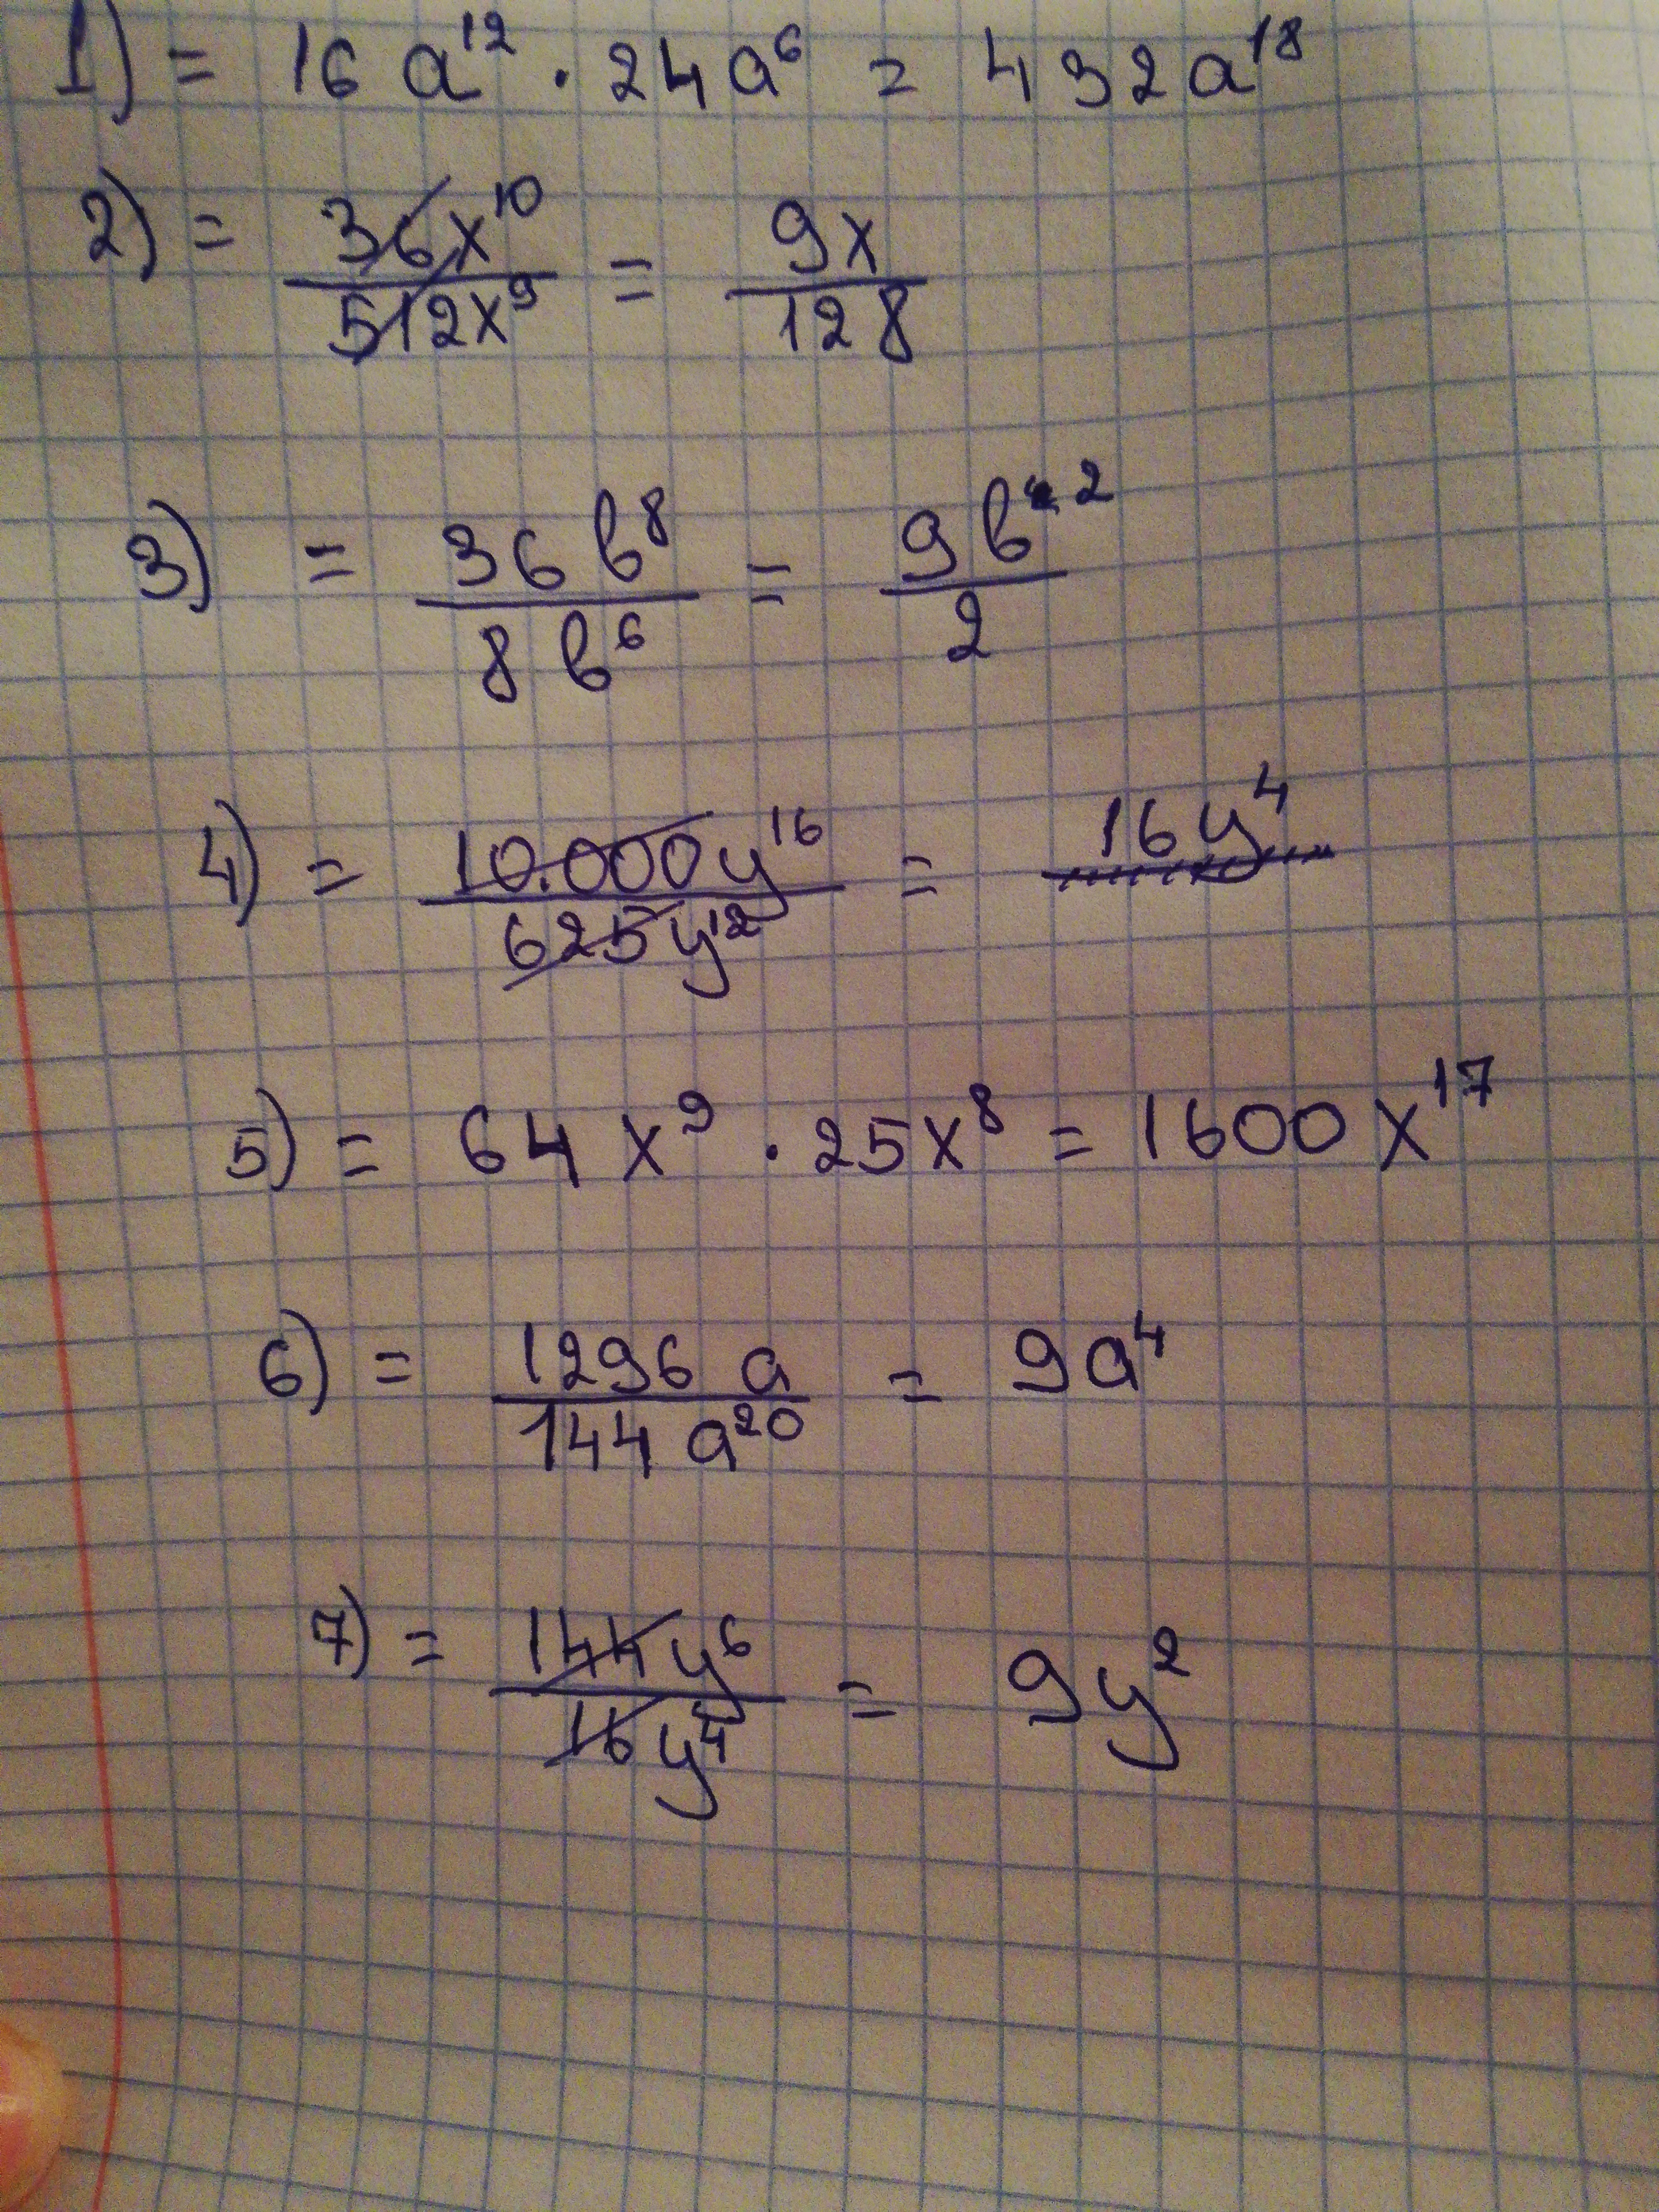 1) = 16 a¹² · 24a⁶ = 432a¹⁸
2) = 36x¹⁰ / 512x⁹ = 9x / 128
3) = 36 b⁸ / 8 b⁶ = 9b² / 2
4) = 10.000y¹⁶ / 625y¹² = 16y⁴
5) = 64 x⁹ · 25x⁸ = 1600 x¹⁷
6) = 1296 a / 144 a²⁰ = 9a⁴
7) = 144y⁶ / 16y⁴ = 9y²